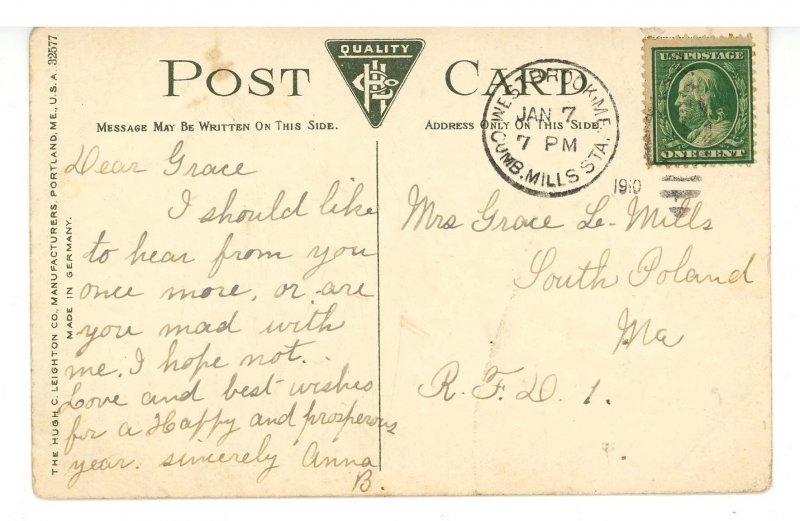 QUALITY
POST CARD
MESSAGE MAY BE WRITTEN ON THIS SIDE.
ADDRESS ONLY ON THIS SIDE.
WESTBROOK, ME.
JAN 7
7 PM
1910
CUMB. MILLS STA.
U.S. POSTAGE
ONE CENT
THE HUGH C. LEIGHTON CO., MANUFACTURERS, PORTLAND, ME., U.S.A. 32577
MADE IN GERMANY.
Dear Grace
I should like
to hear from you
once more, or are
you mad with
me. I hope not.
Love and best wishes
for a Happy and prosperous
year. sincerely Anna
B.
Mrs Grace Le. Mills
South Poland
Me
R.F.D. 1.